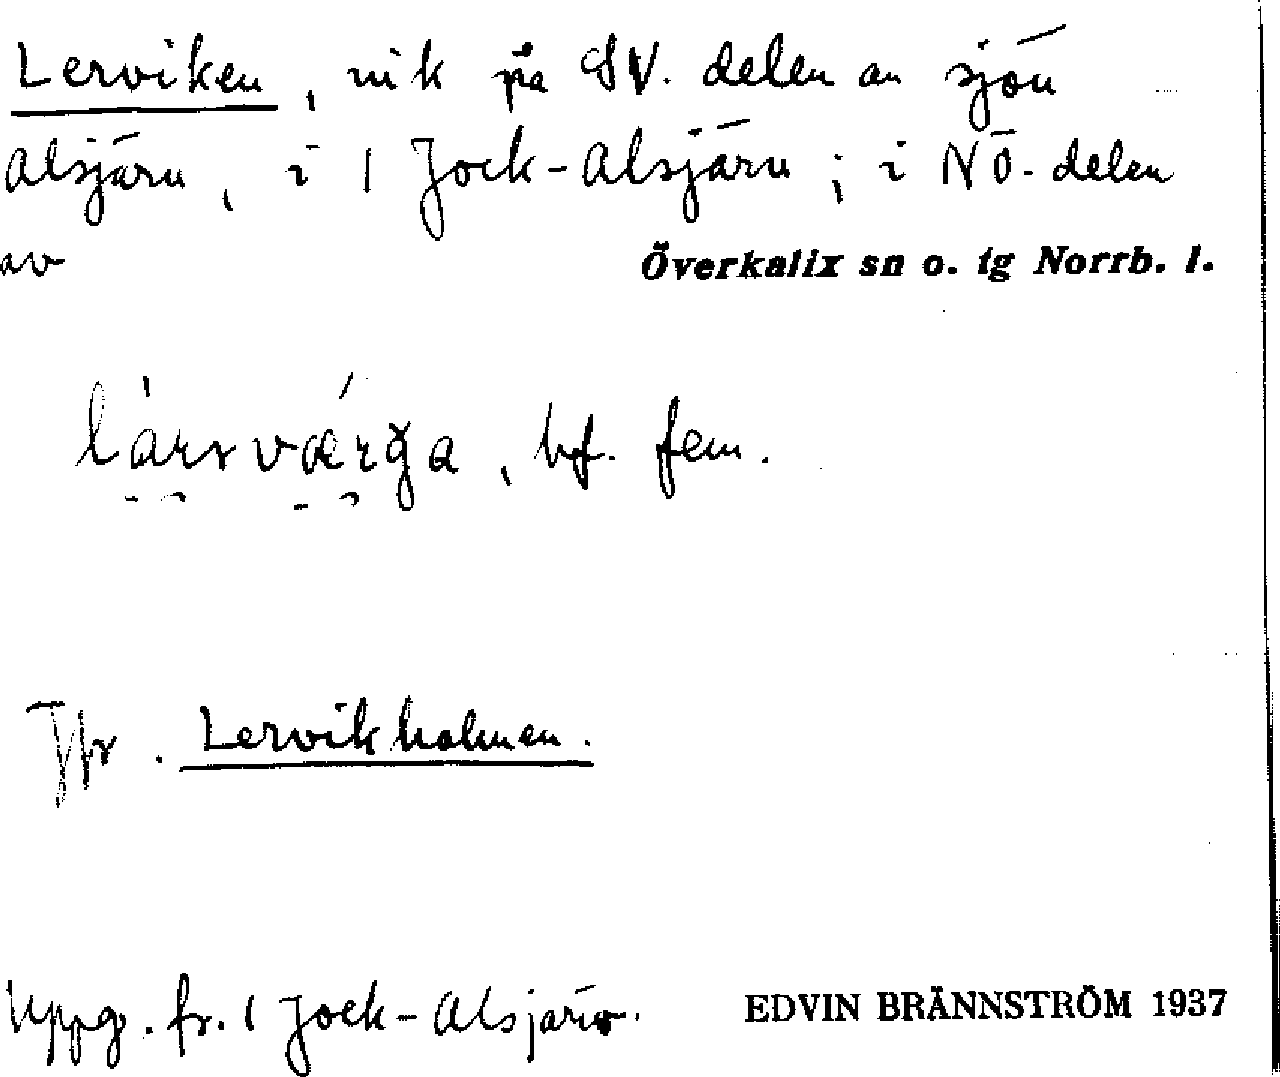 Lerviken, vik på SV. delen av sjön
Alsjärv, i 1 Jock-Alsjärv; i NÖ. delen
av
Överkalix sn o. tg Norrb. l.
bf. fem.
Jfr. Lervikholmen.
Uppg. fr. 1 Jock-Alsjärv.
EDVIN BRÄNNSTRÖM 1937